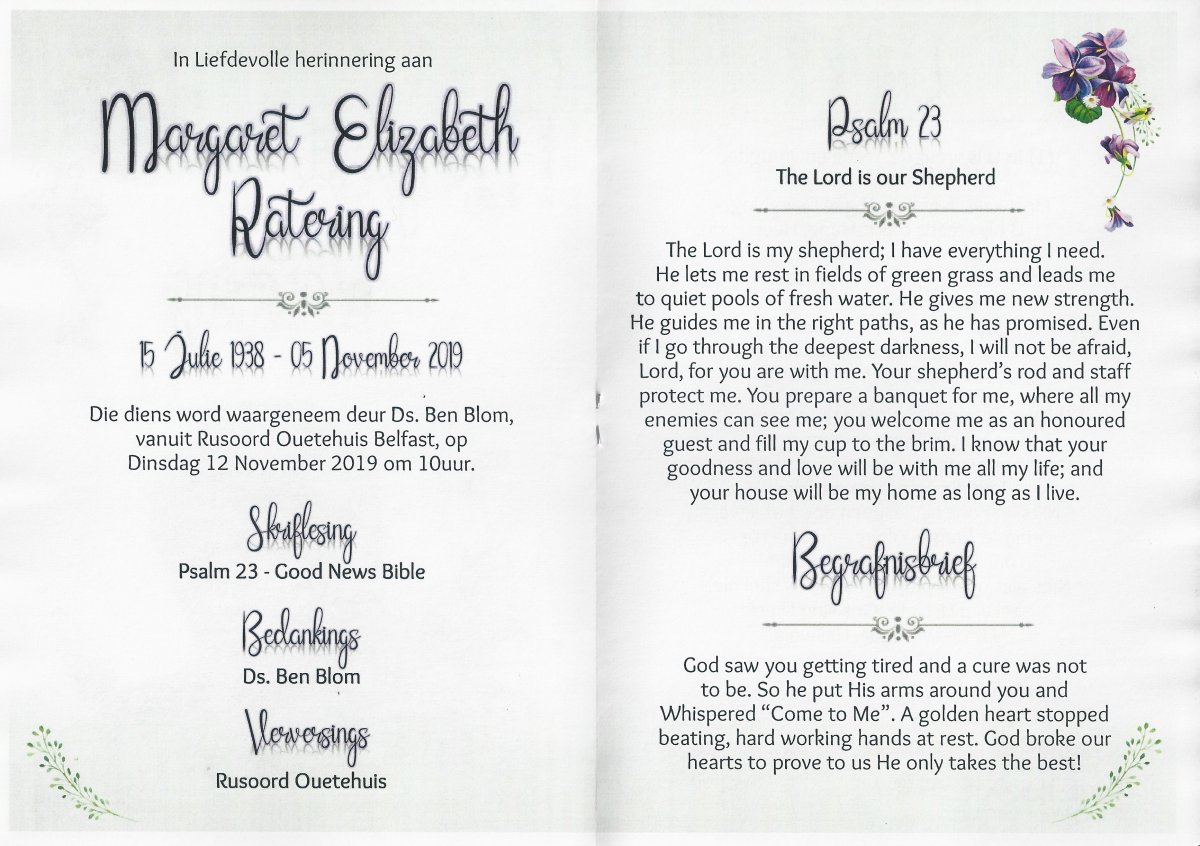 In Liefdevolle herinnering aan
Margaret Elizabeth
Ratering
15 Julie 1938 - 05 November 2019
Die diens word waargeneem deur Ds. Ben Blom,
vanuit Rusoord Ouetehuis Belfast, op
Dinsdag 12 November 2019 om 10uur.
Skriflesing
Psalm 23 - Good News Bible
Bedankings
Ds. Ben Blom
Verversings
Rusoord Ouetehuis
Psalm 23
The Lord is our Shepherd
The Lord is my shepherd; I have everything I need.
He lets me rest in fields of green grass and leads me
to quiet pools of fresh water. He gives me new strength.
He guides me in the right paths, as he has promised. Even
if I go through the deepest darkness, I will not be afraid,
Lord, for you are with me. Your shepherd's rod and staff
protect me. You prepare a banquet for me, where all my
enemies can see me; you welcome me as an honoured
guest and fill my cup to the brim. I know that your
goodness and love will be with me all my life; and
your house will be my home as long as I live.
Begrafnisbrief
God saw you getting tired and a cure was not
to be. So he put His arms around you and
Whispered “Come to Me”. A golden heart stopped
beating, hard working hands at rest. God broke our
hearts to prove to us He only takes the best!